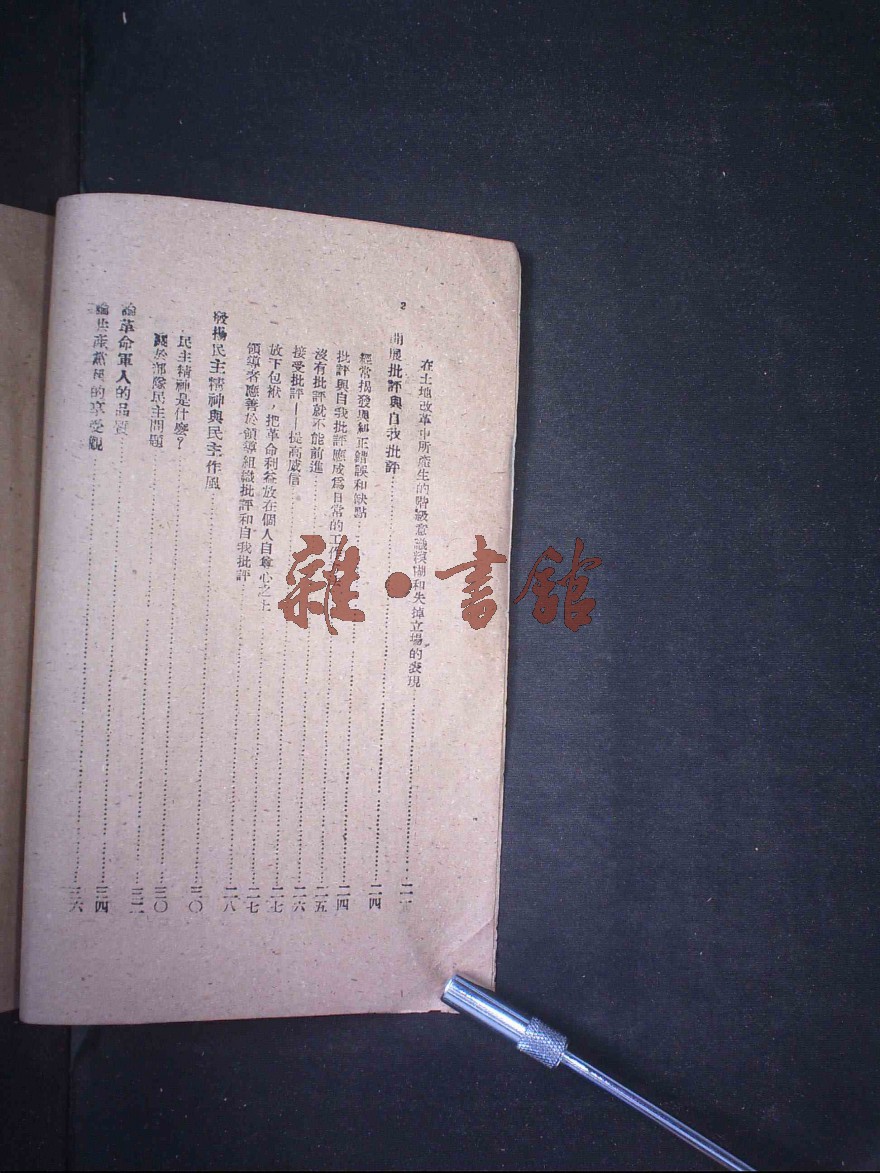 2
在土地改革中所產生的階級意識模糊和失掉立場的表現……二一
開展批評與自我批評……二四
經常揭發與糾正錯誤和缺點……二四
批評與自我批評應成爲日常的工作……二五
沒有批評就不能前進……二六
接受批評——提高威信……二七
放下包袱，把革命利益放在個人自尊心之上……二七
領導者應善於領導組織批評和自我批評……二八
發揚民主精神與民主作風……三〇
民主精神是什麼？……三〇
關於部隊民主問題……三二
論革命軍人的品質……三四
論共產黨員的享受觀……三六
雜·書館